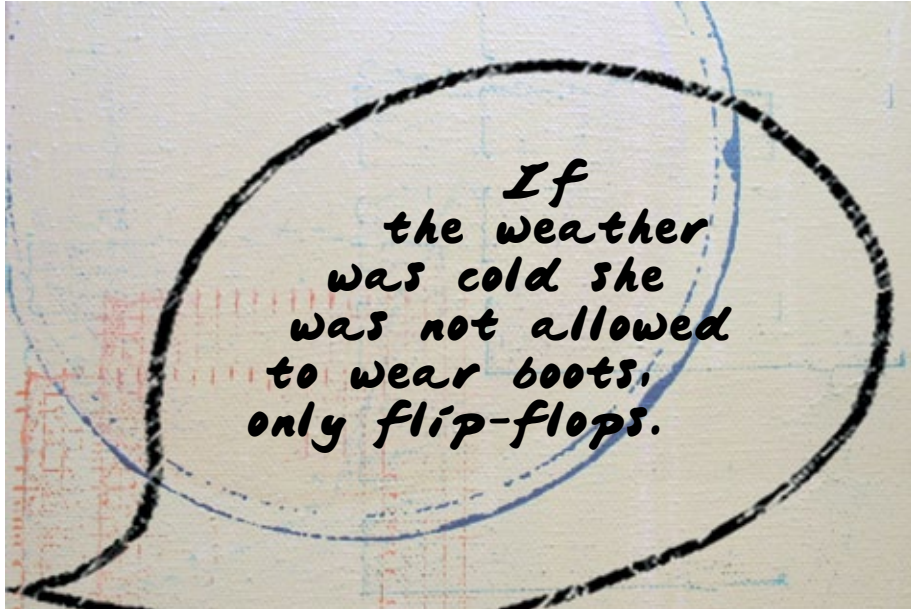 If
the weather
was cold she
was not allowed
to wear boots,
only flip-flops.